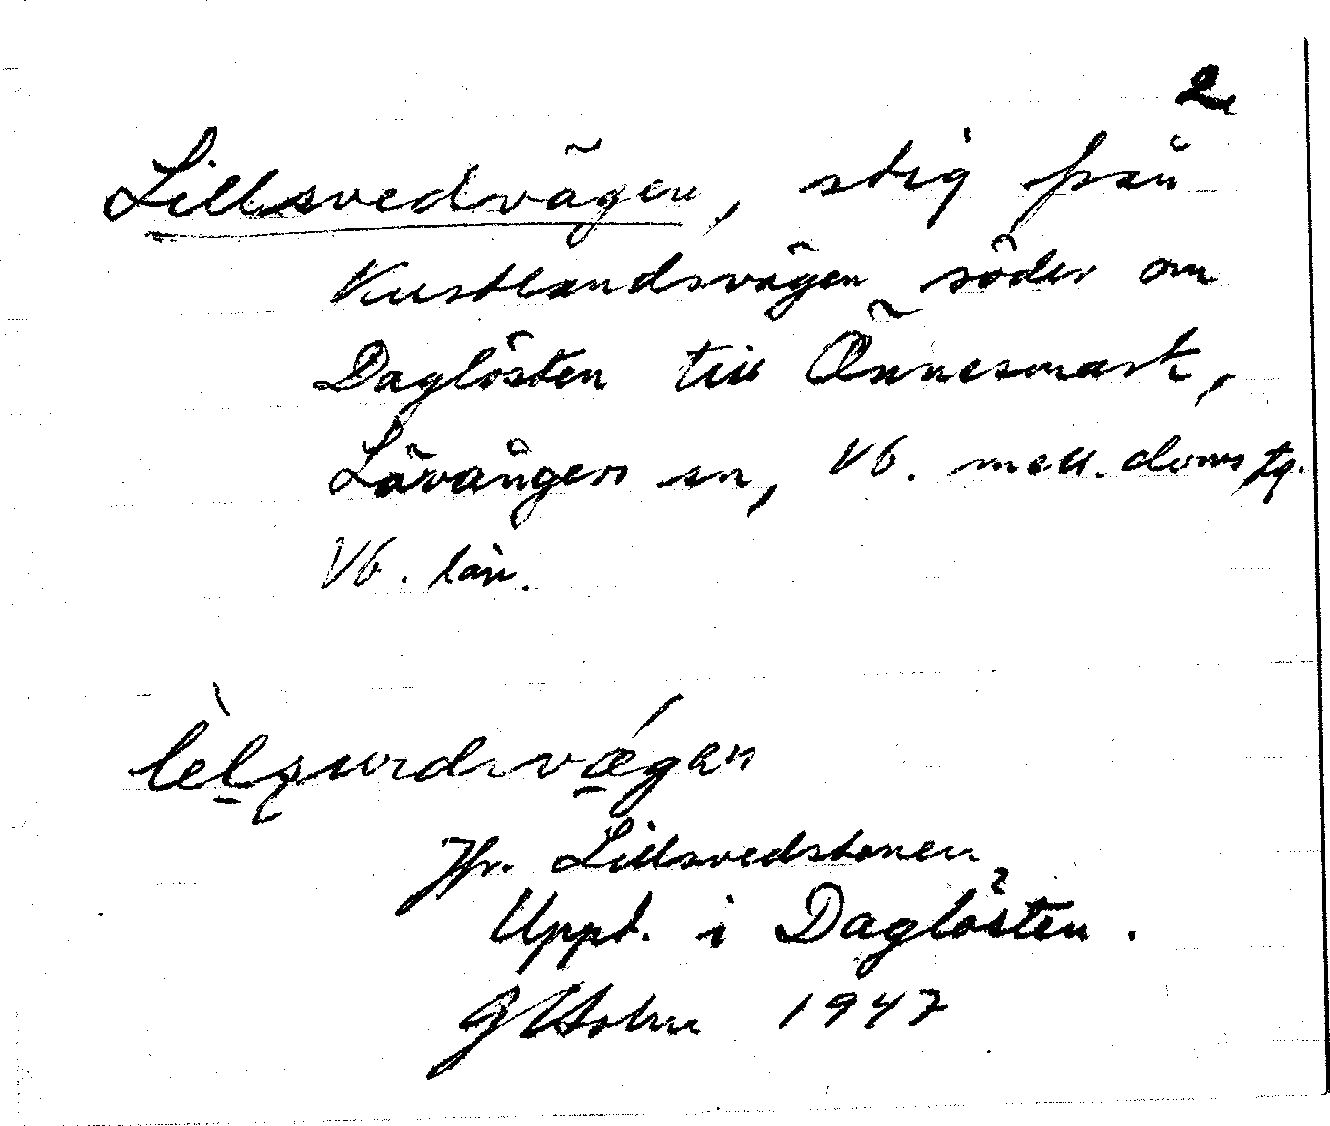 2
Lillsvedvägen, stig från
Kustlandsvägen söder om
Daglösten till Önnesmark,
Lövångers sn, Vb. mell. domsg.
Vb. län.
Jfr. Lillsvedstonen
Uppt. i Daglösten.
G Holm 1947